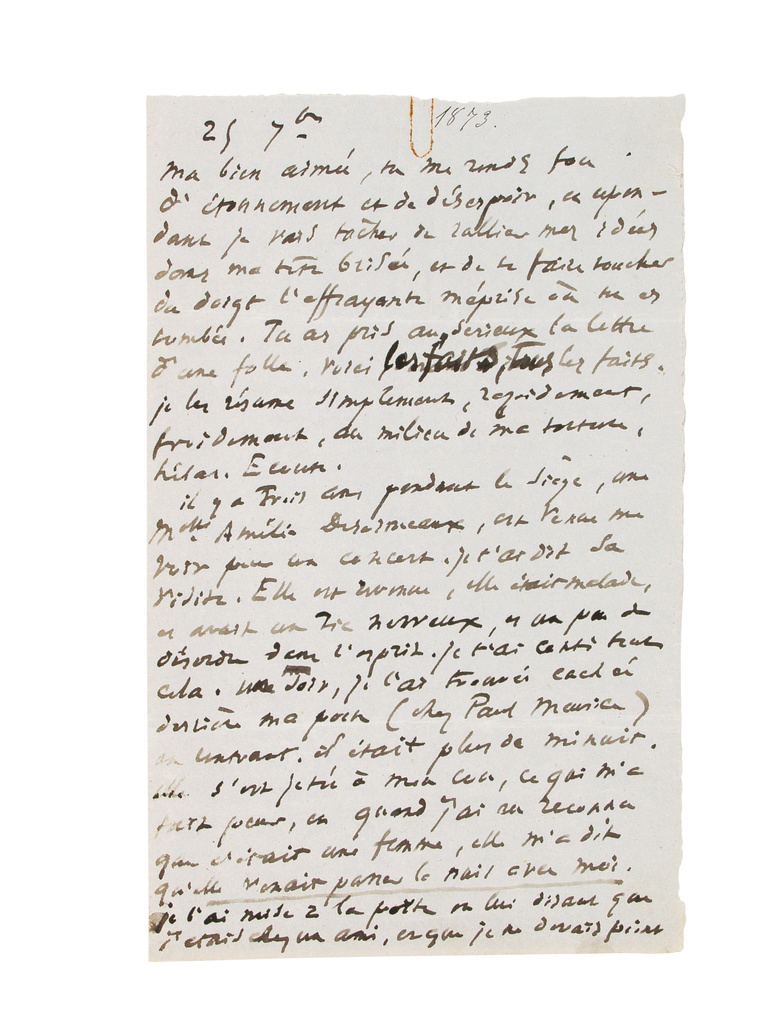 25 7bre 1873.
ma bien aimée, tu me rends fou
d'étonnement et de désespoir, cepen-
dant je vais tâcher de rallier mes idées
dans ma tête brisée, et de te faire toucher
du doigt l'effrayante méprise où tu es
tombée. Tu as pris au sérieux la lettre
d'une folle. Voici les faits, tous les faits.
je les résume simplement, rapidement,
froidement, au milieu de ma torture,
hélas. Ecoute.
il y a trois ans pendant le siège, une
Melle Amélie Desormeaux, est venue me
voir pour un concert. je t'ai dit sa
visite. Elle est revenue, elle était malade,
et avait un tic nerveux, et un peu de
désordre dans l'esprit. je t'ai conté tout
cela. un soir, je l'ai trouvée cachée
derrière ma porte (chez Paul Meurice)
en rentrant. il était plus de minuit.
elle s'est jetée à mon cou, ce qui m'a
fait peur, et quand j'ai reconnu
que c'était une femme, elle m'a dit
qu'elle venait passer la nuit avec moi.
je l'ai mise à la porte en lui disant que
j'étais chez un ami, et que je ne devais point